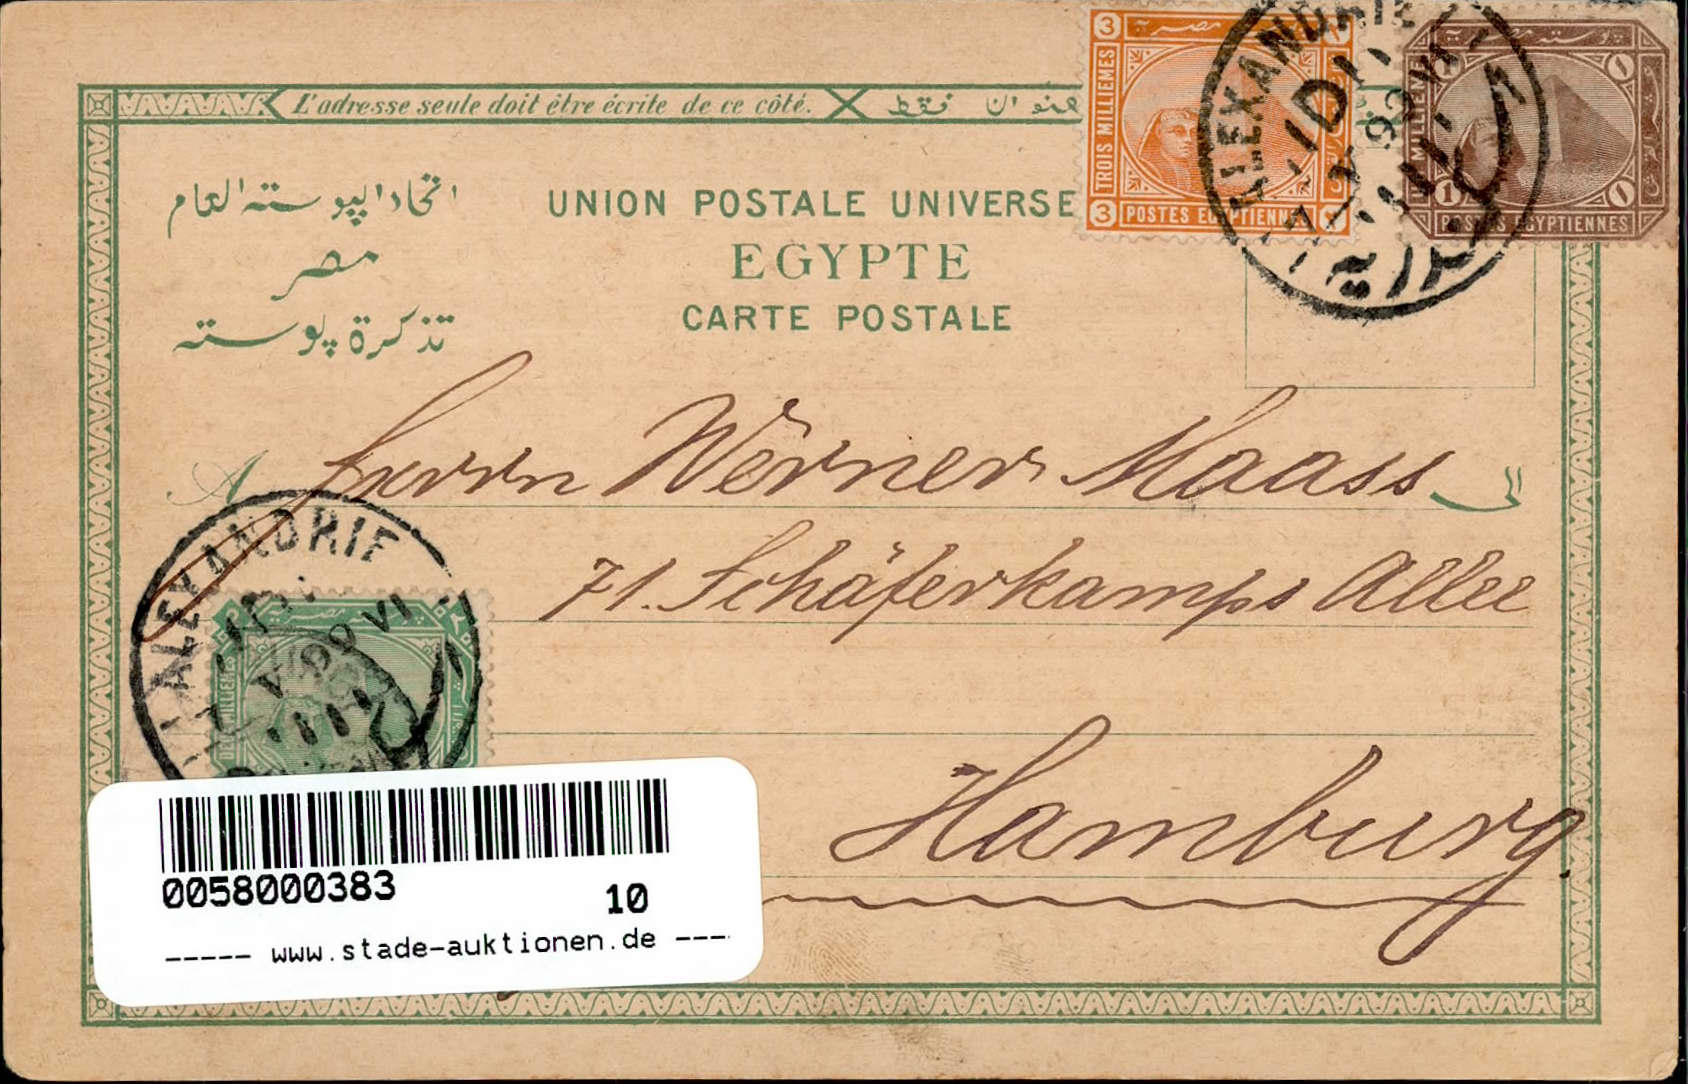 L'adresse seule doit être écrite de ce côté.
عنوان فقط
اتحاد البوسته العام
مصر
تذكرة بوسته
UNION POSTALE UNIVERSE
EGYPTE
CARTE POSTALE
3 مصر
TROIS MILLIEMES
3 POSTES EGYPTIENNES
ALEXANDRIE
1 MILLIEME
1 POSTES EGYPTIENNES
A
Herrn Werner Maass
الى
71. Schäferkamps Allee
Hamburg.
ALEXANDRIE
0058000383
10
----- www.stade-auktionen.de ----